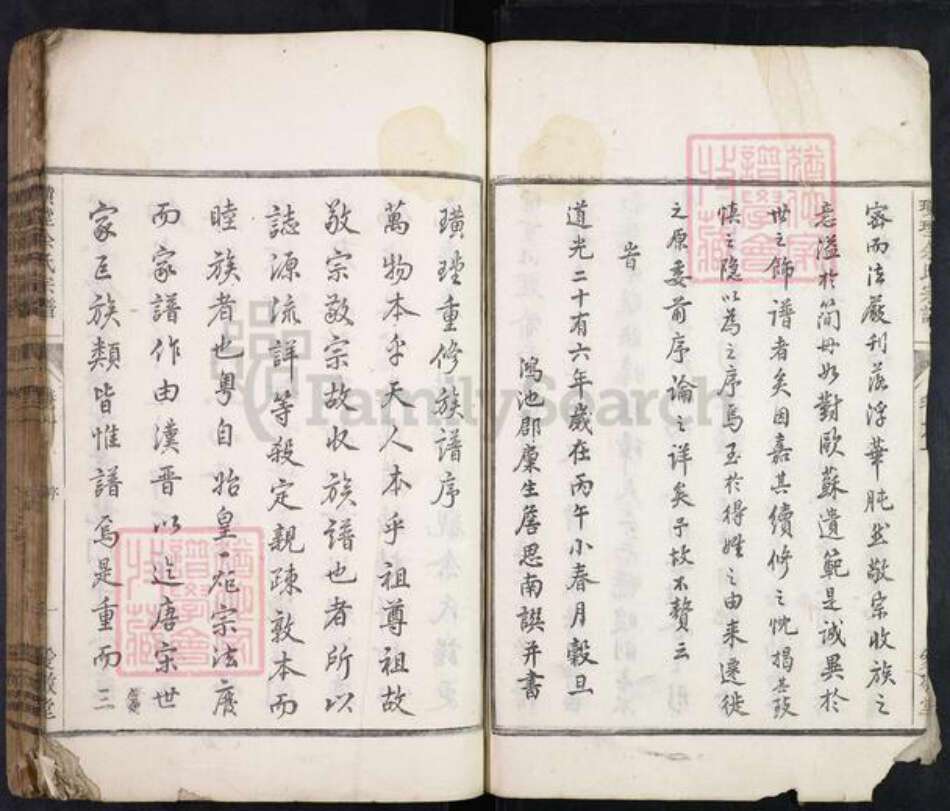 密而法嚴刊落浮華肫然敬宗收族之
意溢於簡毋如對歐蘇遺範是誠異於
世之飾譜者矣因嘉其續修之忱揭其致
慎之隱以為之序焉至於得姓之由來遷徙
之原委前序論之詳矣予故不贅云
旹
道光二十有六年歲在丙午小春月穀旦
鴻池郡廩生詹思南譔并書
璜堙重修族譜序
萬物本乎天人本乎祖尊祖故
敬宗敬宗故收族譜也者所以
誌源流詳等殺定親疎敦本而
睦族者也粵自始皇一炬宗法廢
而家譜作由漢晉以迄唐宋世
家巨族類皆惟譜焉是重而三
余氏宗譜
FamilySearch